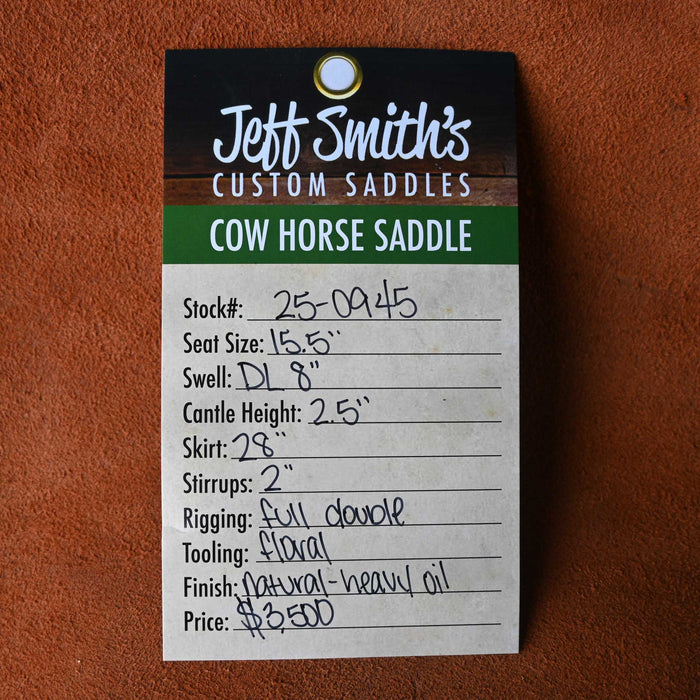 Jeff Smith's
CUSTOM SADDLES
COW HORSE SADDLE
Stock#: 25-0945
Seat Size: 15.5"
Swell: DL 8"
Cantle Height: 2.5"
Skirt: 28"
Stirrups: 2"
Rigging: full double
Tooling: floral
Finish: natural-heavy oil
Price: $3,500